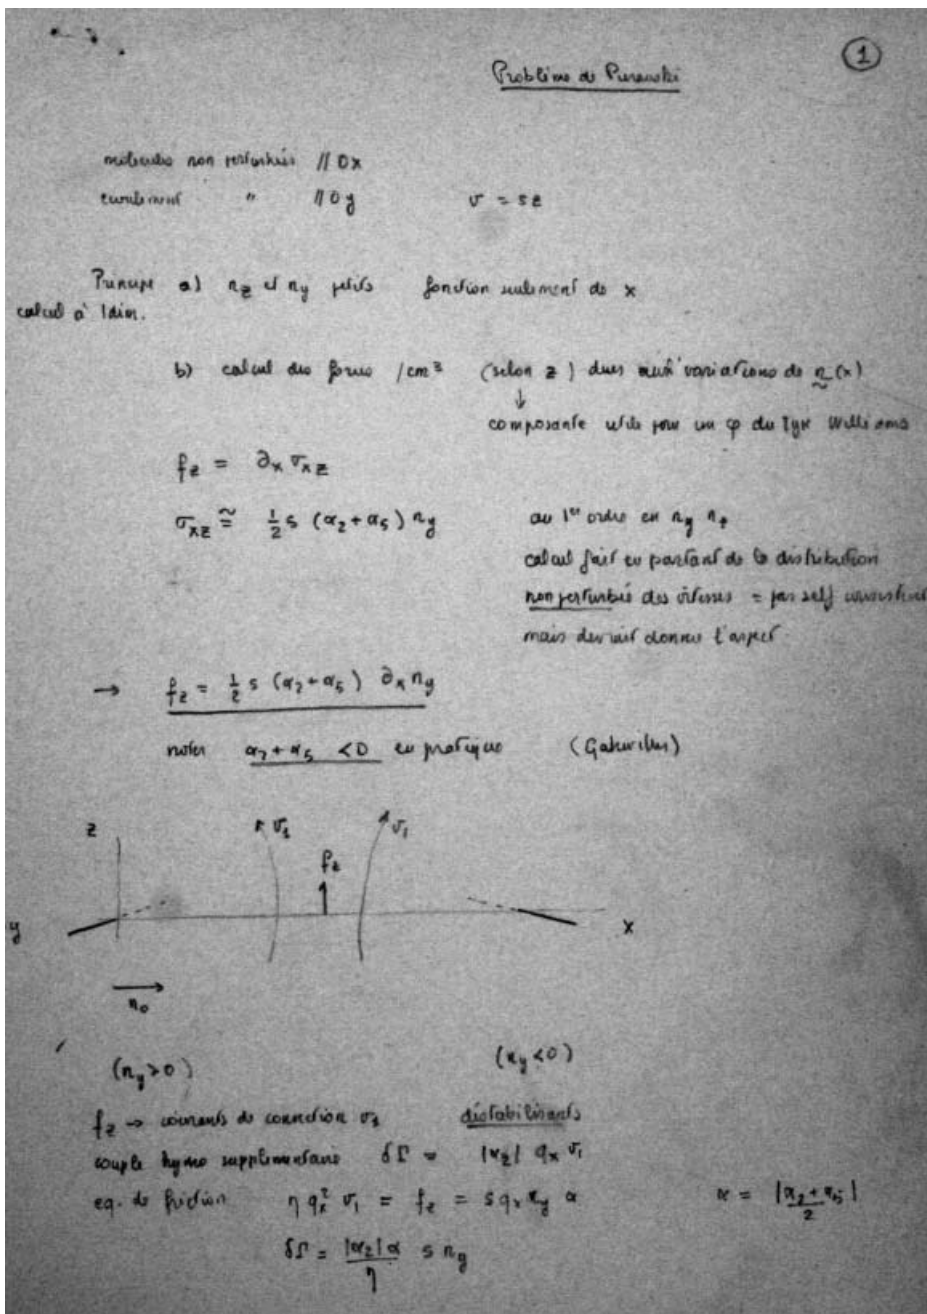 ①
Problème de Pieranski
molécules non perturbées // Ox
écoulement " // Oy v = sz
Principe a) n_z et n_y petits fonction seulement de x
calcul à 1 dim.
b) calcul des forces /cm³ (selon z) dues aux variations de n(x)
↓
composante utile pour un φ du type Williams
f_z = ∂_x σ_xz
σ_xz ≅ ½ s (α₂ + α₅) n_y au 1er ordre en n_y n_z
calcul fait en partant de la distribution
non perturbée des vitesses = pas self consistent
mais devrait donner l'aspect
→ f_z = ½ s (α₂ + α₅) ∂_x n_y
noter α₂ + α₅ < 0 en pratique (Gahwiller)
z v₁ v₁
f_z
y x
n₀
(n_y > 0) (n_y < 0)
f_z → courants de convection v₁ déstabilisants
couple hydro supplémentaire δΓ = |α₂| q_x v₁
eq. de friction η q_x² v₁ = f_z = s q_x n_y α α = |α₂ + α₅|/2
δΓ = |α₂| α / η s n_y